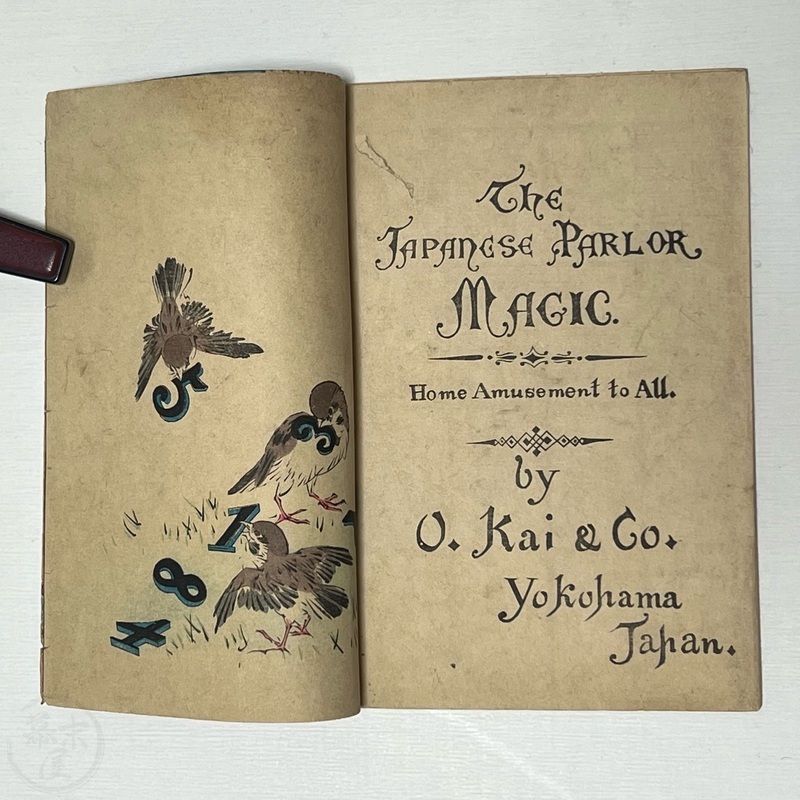 5
3
1
8
4
The
Japanese Parlor
Magic.
Home Amusement to All.
by
O. Kai & Co.
Yokohama
Japan.